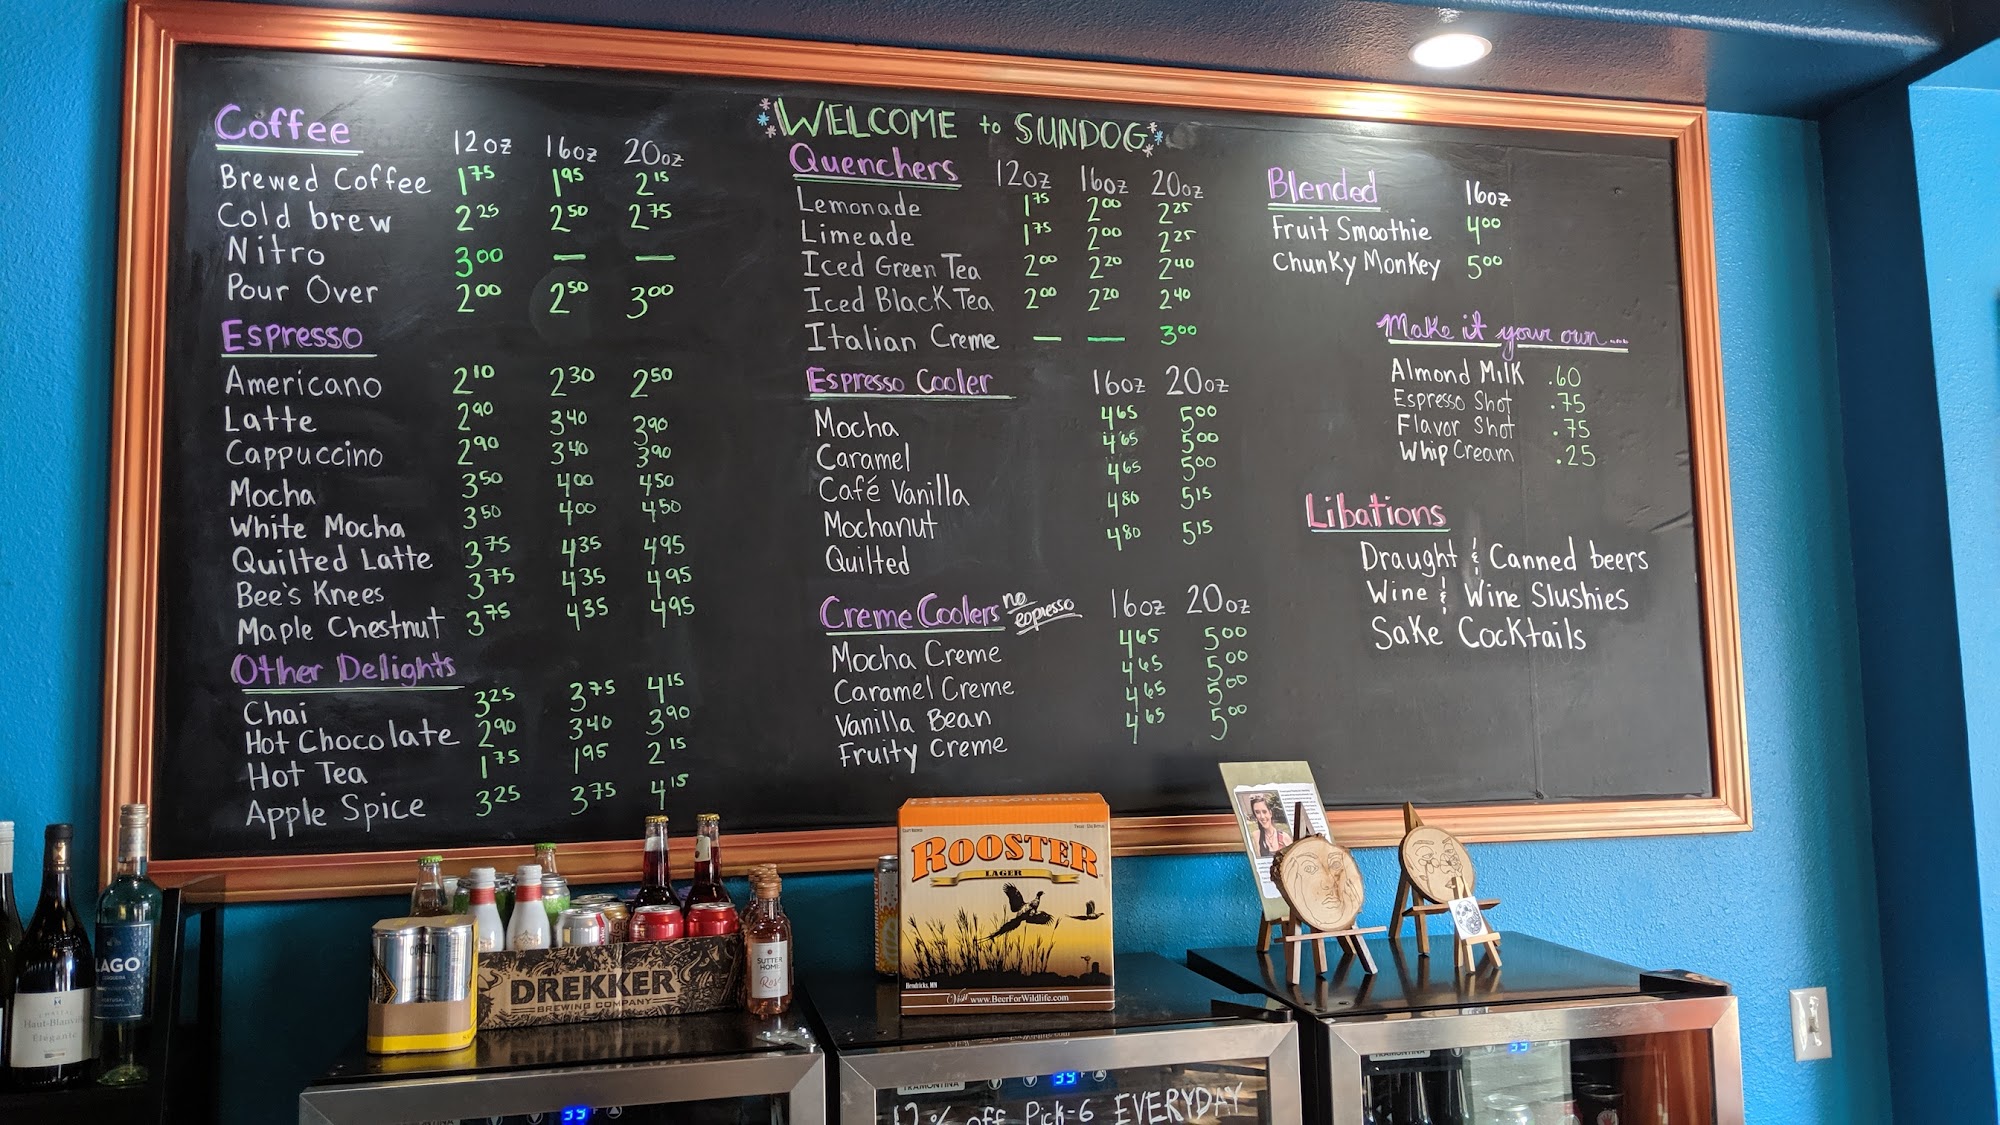 WELCOME to SUNDOG
Coffee 12oz 16oz 20oz
Brewed Coffee 1.75 1.95 2.15
Cold brew 2.25 2.50 2.75
Nitro 3.00 — —
Pour Over 2.00 2.50 3.00
Espresso
Americano 2.10 2.30 2.50
Latte 2.90 3.40 3.90
Cappuccino 2.90 3.40 3.90
Mocha 3.50 4.00 4.50
White Mocha 3.50 4.00 4.50
Quilted Latte 3.75 4.35 4.95
Bee's Knees 3.75 4.35 4.95
Maple Chestnut 3.75 4.35 4.95
Other Delights
Chai 3.25 3.75 4.15
Hot Chocolate 2.90 3.40 3.90
Hot Tea 1.75 1.95 2.15
Apple Spice 3.25 3.75 4.15
Quenchers 12oz 16oz 20oz
Lemonade 1.75 2.00 2.25
Limeade 1.75 2.00 2.25
Iced Green Tea 2.00 2.20 2.40
Iced Black Tea 2.00 2.20 2.40
Italian Creme — — 3.00
Espresso Cooler 16oz 20oz
Mocha 4.65 5.00
Caramel 4.65 5.00
Café Vanilla 4.65 5.00
Mochanut 4.80 5.15
Quilted 4.80 5.15
Creme Coolers no espresso 16oz 20oz
Mocha Creme 4.65 5.00
Caramel Creme 4.65 5.00
Vanilla Bean 4.65 5.00
Fruity Creme 4.65 5.00
Blended 16oz
Fruit Smoothie 4.00
Chunky Monkey 5.00
Make it your own...
Almond Milk .60
Espresso Shot .75
Flavor Shot .75
Whip Cream .25
Libations
Draught & Canned beers
Wine & Wine Slushies
Sake Cocktails
LAGO
PORTUGAL
Haut-Blanville
Elegante
DREKKER
BREWING COMPANY
SUTTER
HOME
Rosé
ROOSTER
LAGER
Hendricks, MN
Visit www.BeerForWildlife.com
39
TRAMONTINA
39
12% off Pick-6 EVERYDAY
TRAMONTINA
39